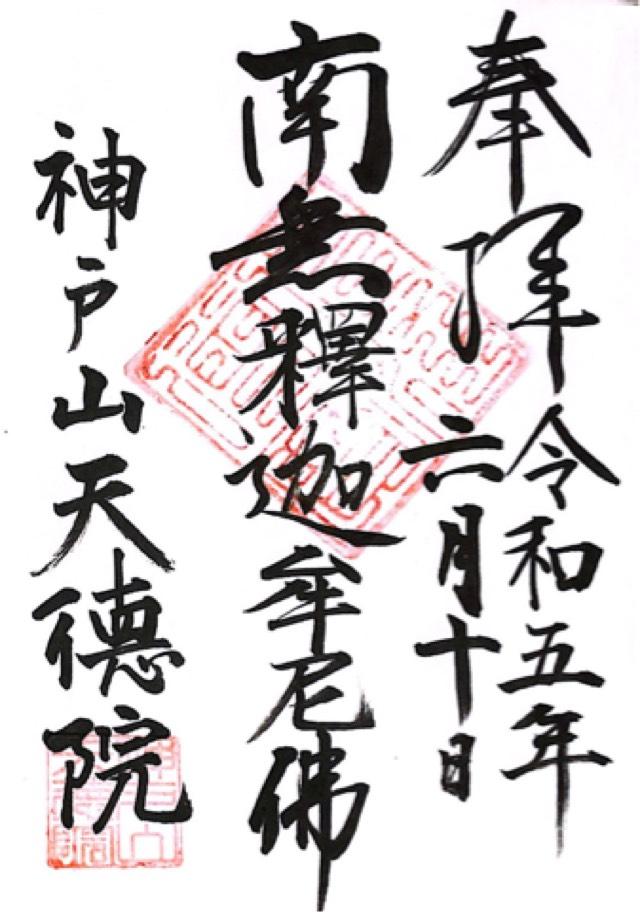 奉拝
令和五年
六月十日
南無釋迦牟尼佛
神戸山天德院